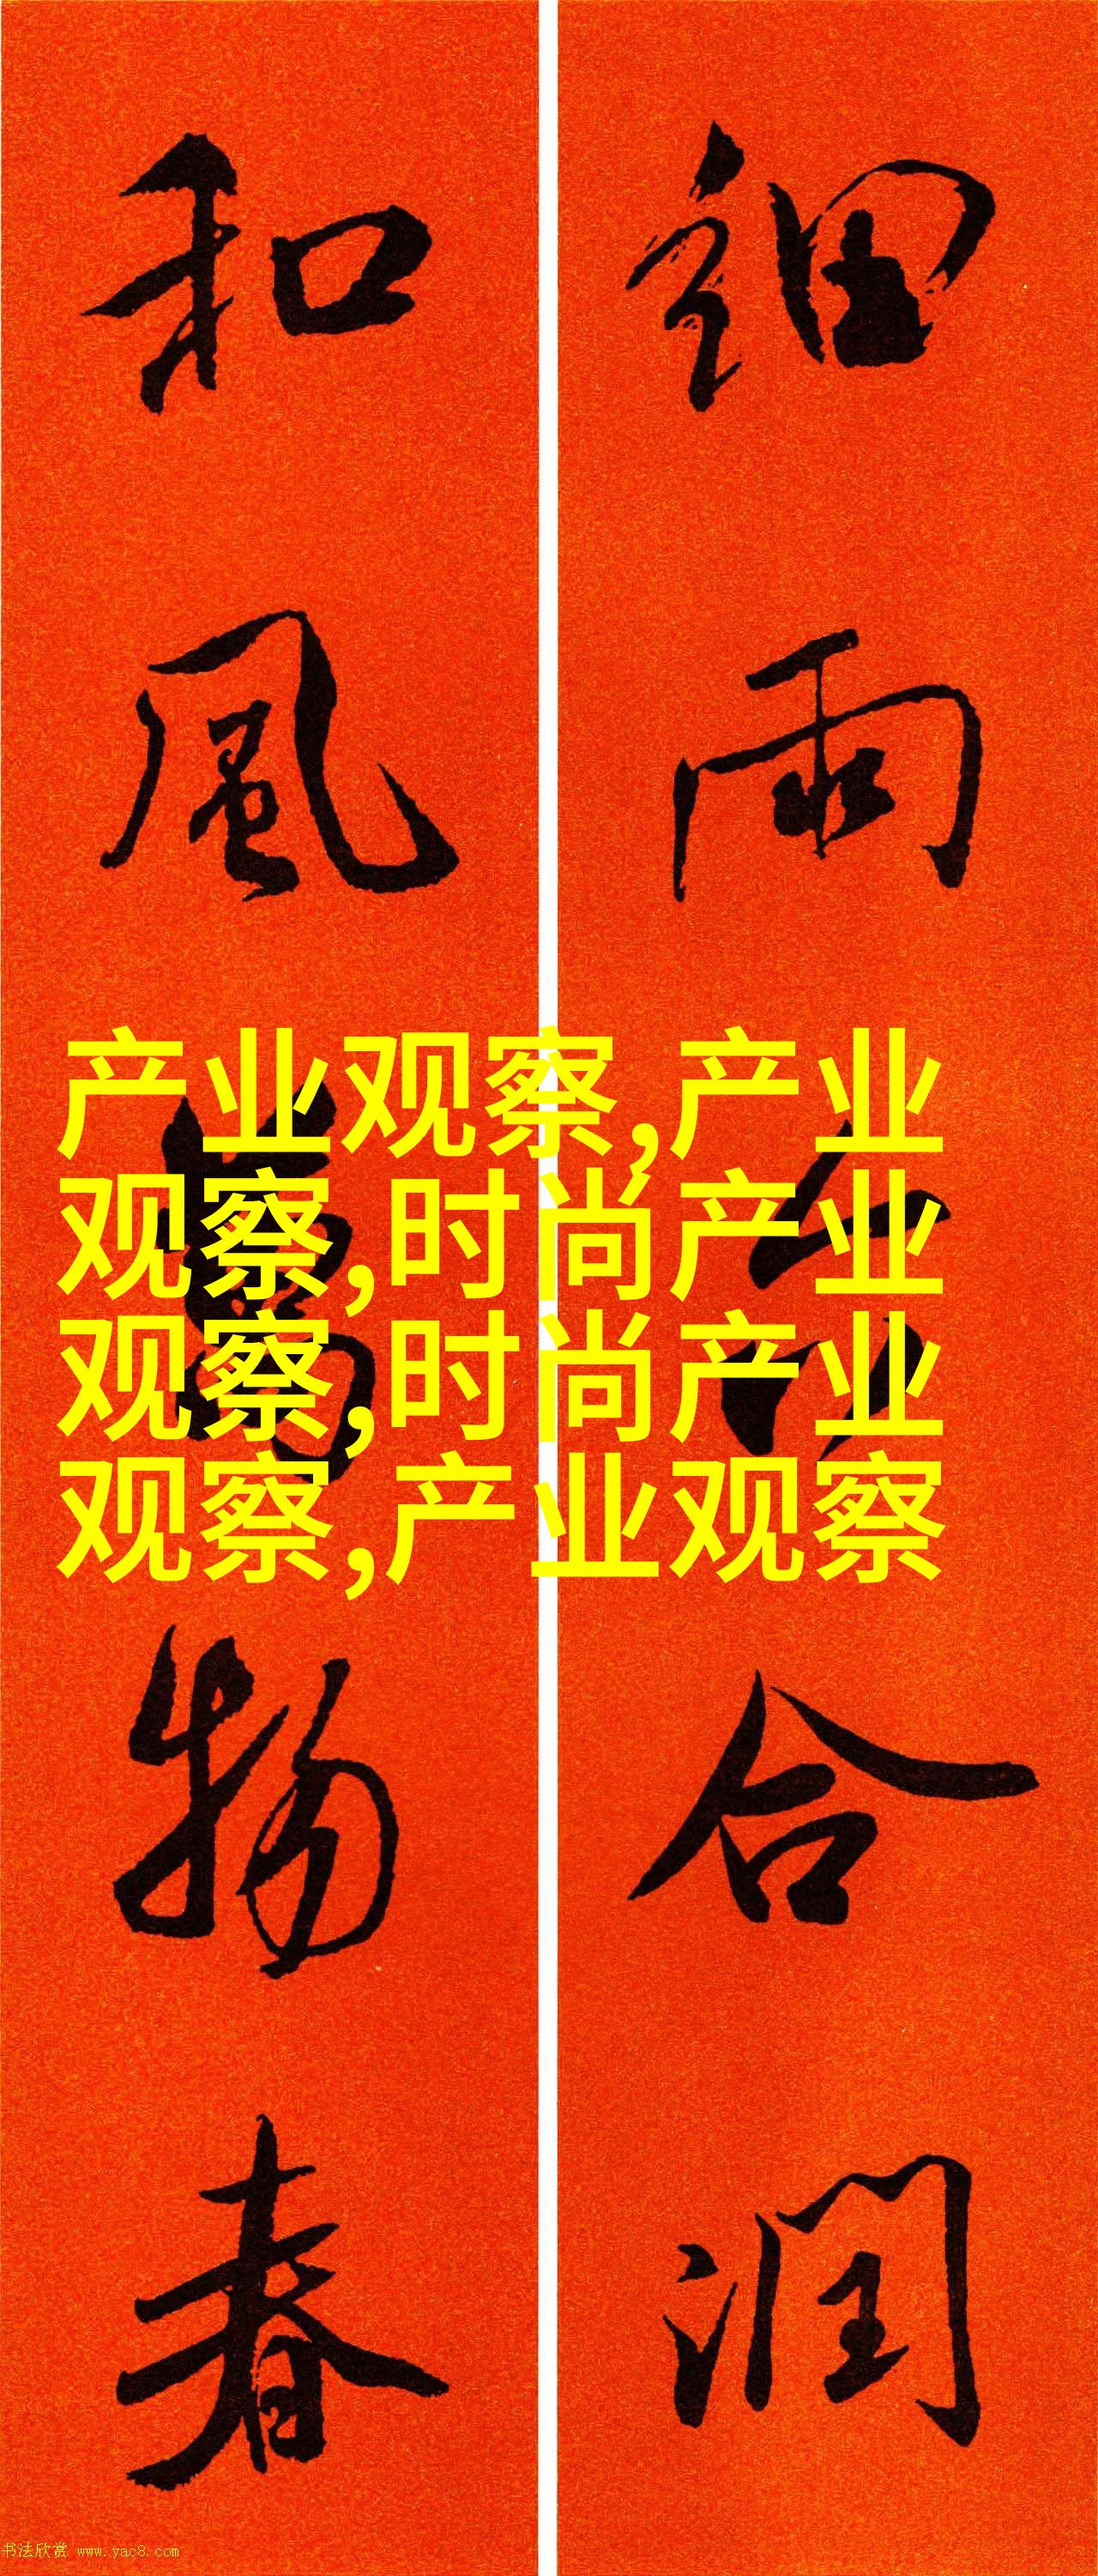 细雨六合润
和風萬物春
产业观察,产业
观察,时尚产业
观察,时尚产业
观察,产业观察
书法欣赏 www.yac8.com